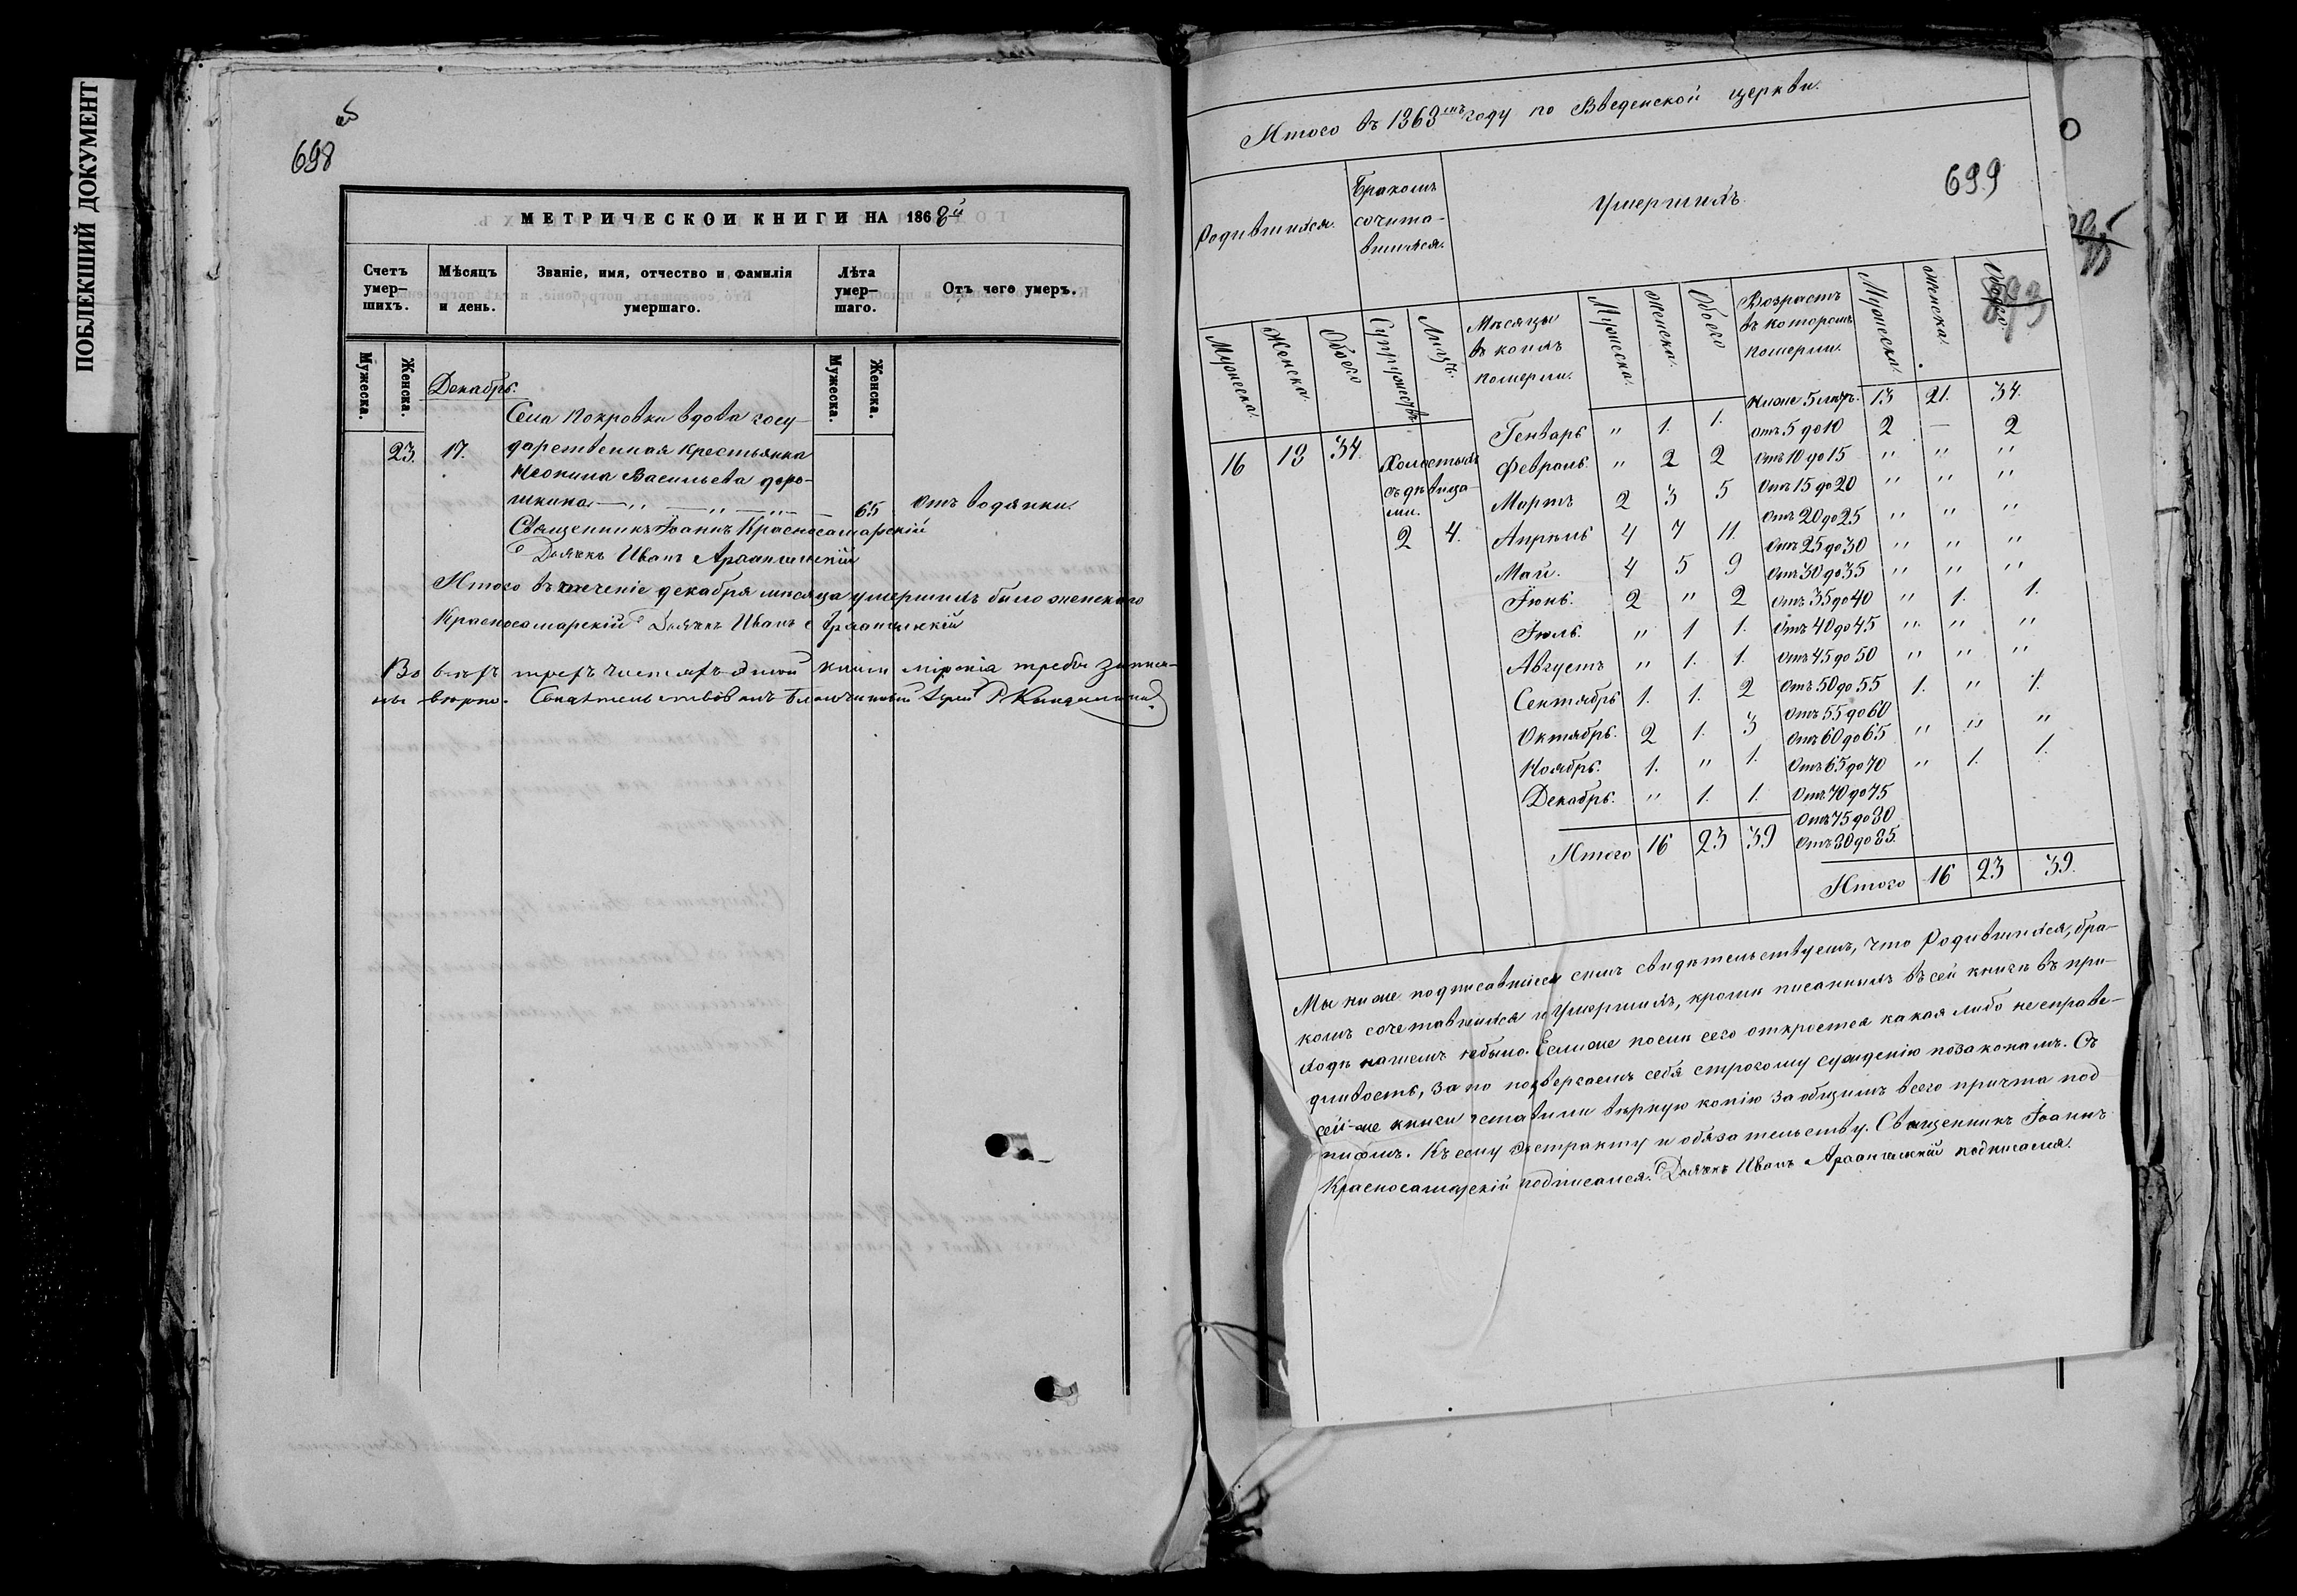 ПОБЛЕКШИЙ ДОКУМЕНТ
698
об
МЕТРИЧЕСКОЙ КНИГИ НА 1868й
Счетъ умер- шихъ.
Мѣсяцъ и день.
Званіе, имя, отчество и фамилія умершаго.
Лѣта умер- шаго.
Отъ чего умеръ.
Мужеска. Женска. Мужеска. Женска.
Декабрь.
Села Покровки вдова госу-
23. 17. дарственная крестьянка
Васильева Доро-
шкина 65 отъ водянки.
Священникъ Іоаннъ Красносамарскій
Дьячекъ Иванъ Архангельскій
Итого въ теченіе декабря мѣсяца умершихъ было женскаго
Красносамарскій Дьячекъ Иванъ Архангельскій
Во всѣхъ трехъ частяхъ этой книги требы записа-
ны вѣрно.
Итого въ 1868мъ году по Введенской церкви.
699
Родившихся.
Бракомъ сочита- вшихся.
Умершихъ
Мужеска. Женска. Обоего Супружествъ Лицъ. Мѣсяцы въ коихъ померли. Мужеска. Женска. Обоего Возрастъ въ которомъ померли. Мужеска. Женска. Обоего
16 18 34.
Холостыхъ съ дѣвица- ми.
2 4.
Генварь " 1. 1.
Февраль. " 2 2
Мартъ 2 3 5
Апрѣль 4 7 11.
Май. 4 5 9
Іюнь. 2 " 2
Іюль. " 1 1.
Августъ " 1. 1.
Сентябрь 1. 1. 2
Октябрь. 2 1. 3
Ноябрь. 1. " 1.
Декабрь. " 1. 1.
Итого 16 23 39
Ниже 5 лѣтъ. 13 21. 34.
Отъ 5 до 10 2 — 2
Отъ 10 до 15 " " "
Отъ 15 до 20 " " "
Отъ 20 до 25 " " "
Отъ 25 до 30 " " "
Отъ 30 до 35 " " "
Отъ 35 до 40 " 1. 1.
Отъ 40 до 45 " " "
Отъ 45 до 50 " " "
Отъ 50 до 55 1. " 1.
Отъ 55 до 60
Отъ 60 до 65 " " "
Отъ 65 до 70 " 1. 1.
Отъ 70 до 75
Отъ 75 до 80
Отъ 80 до 85.
Итого 16 23 39.
Мы ниже подписавшіеся симъ свидѣтельствуемъ, что Родившихся, бра-
комъ сочетавшихся и Умершихъ, кромѣ писанныхъ въ сей книгѣ въ при-
ходѣ нашемъ небыло. Если же послѣ сего откроется какая либо несправе-
дливость, за то подвергаемъ себя строгому сужденію по законамъ. Съ
сей-же книги оставили вѣрную копію за общимъ всего причта под
писомъ. Къ сему экстракту и обязательству. Священникъ Іоаннъ
Красносамарскій подписался. Дьячекъ Иванъ Архангельскій подписался.